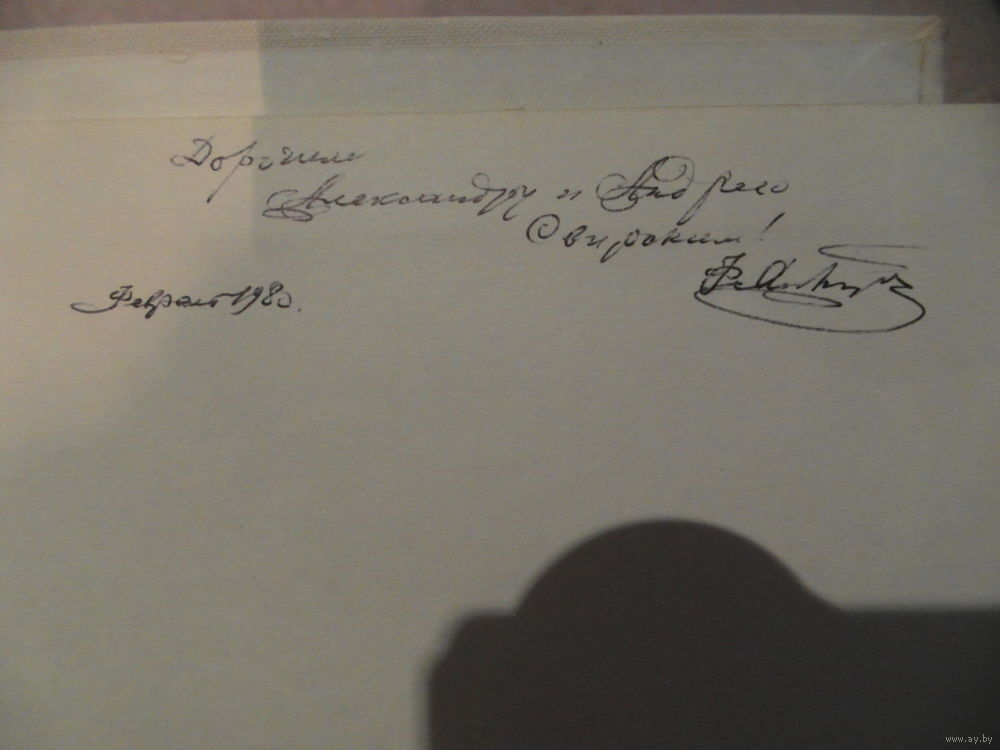 Дорогим
Александру и Андрею
Свироким!
Февраль 1980.
www.ay.by